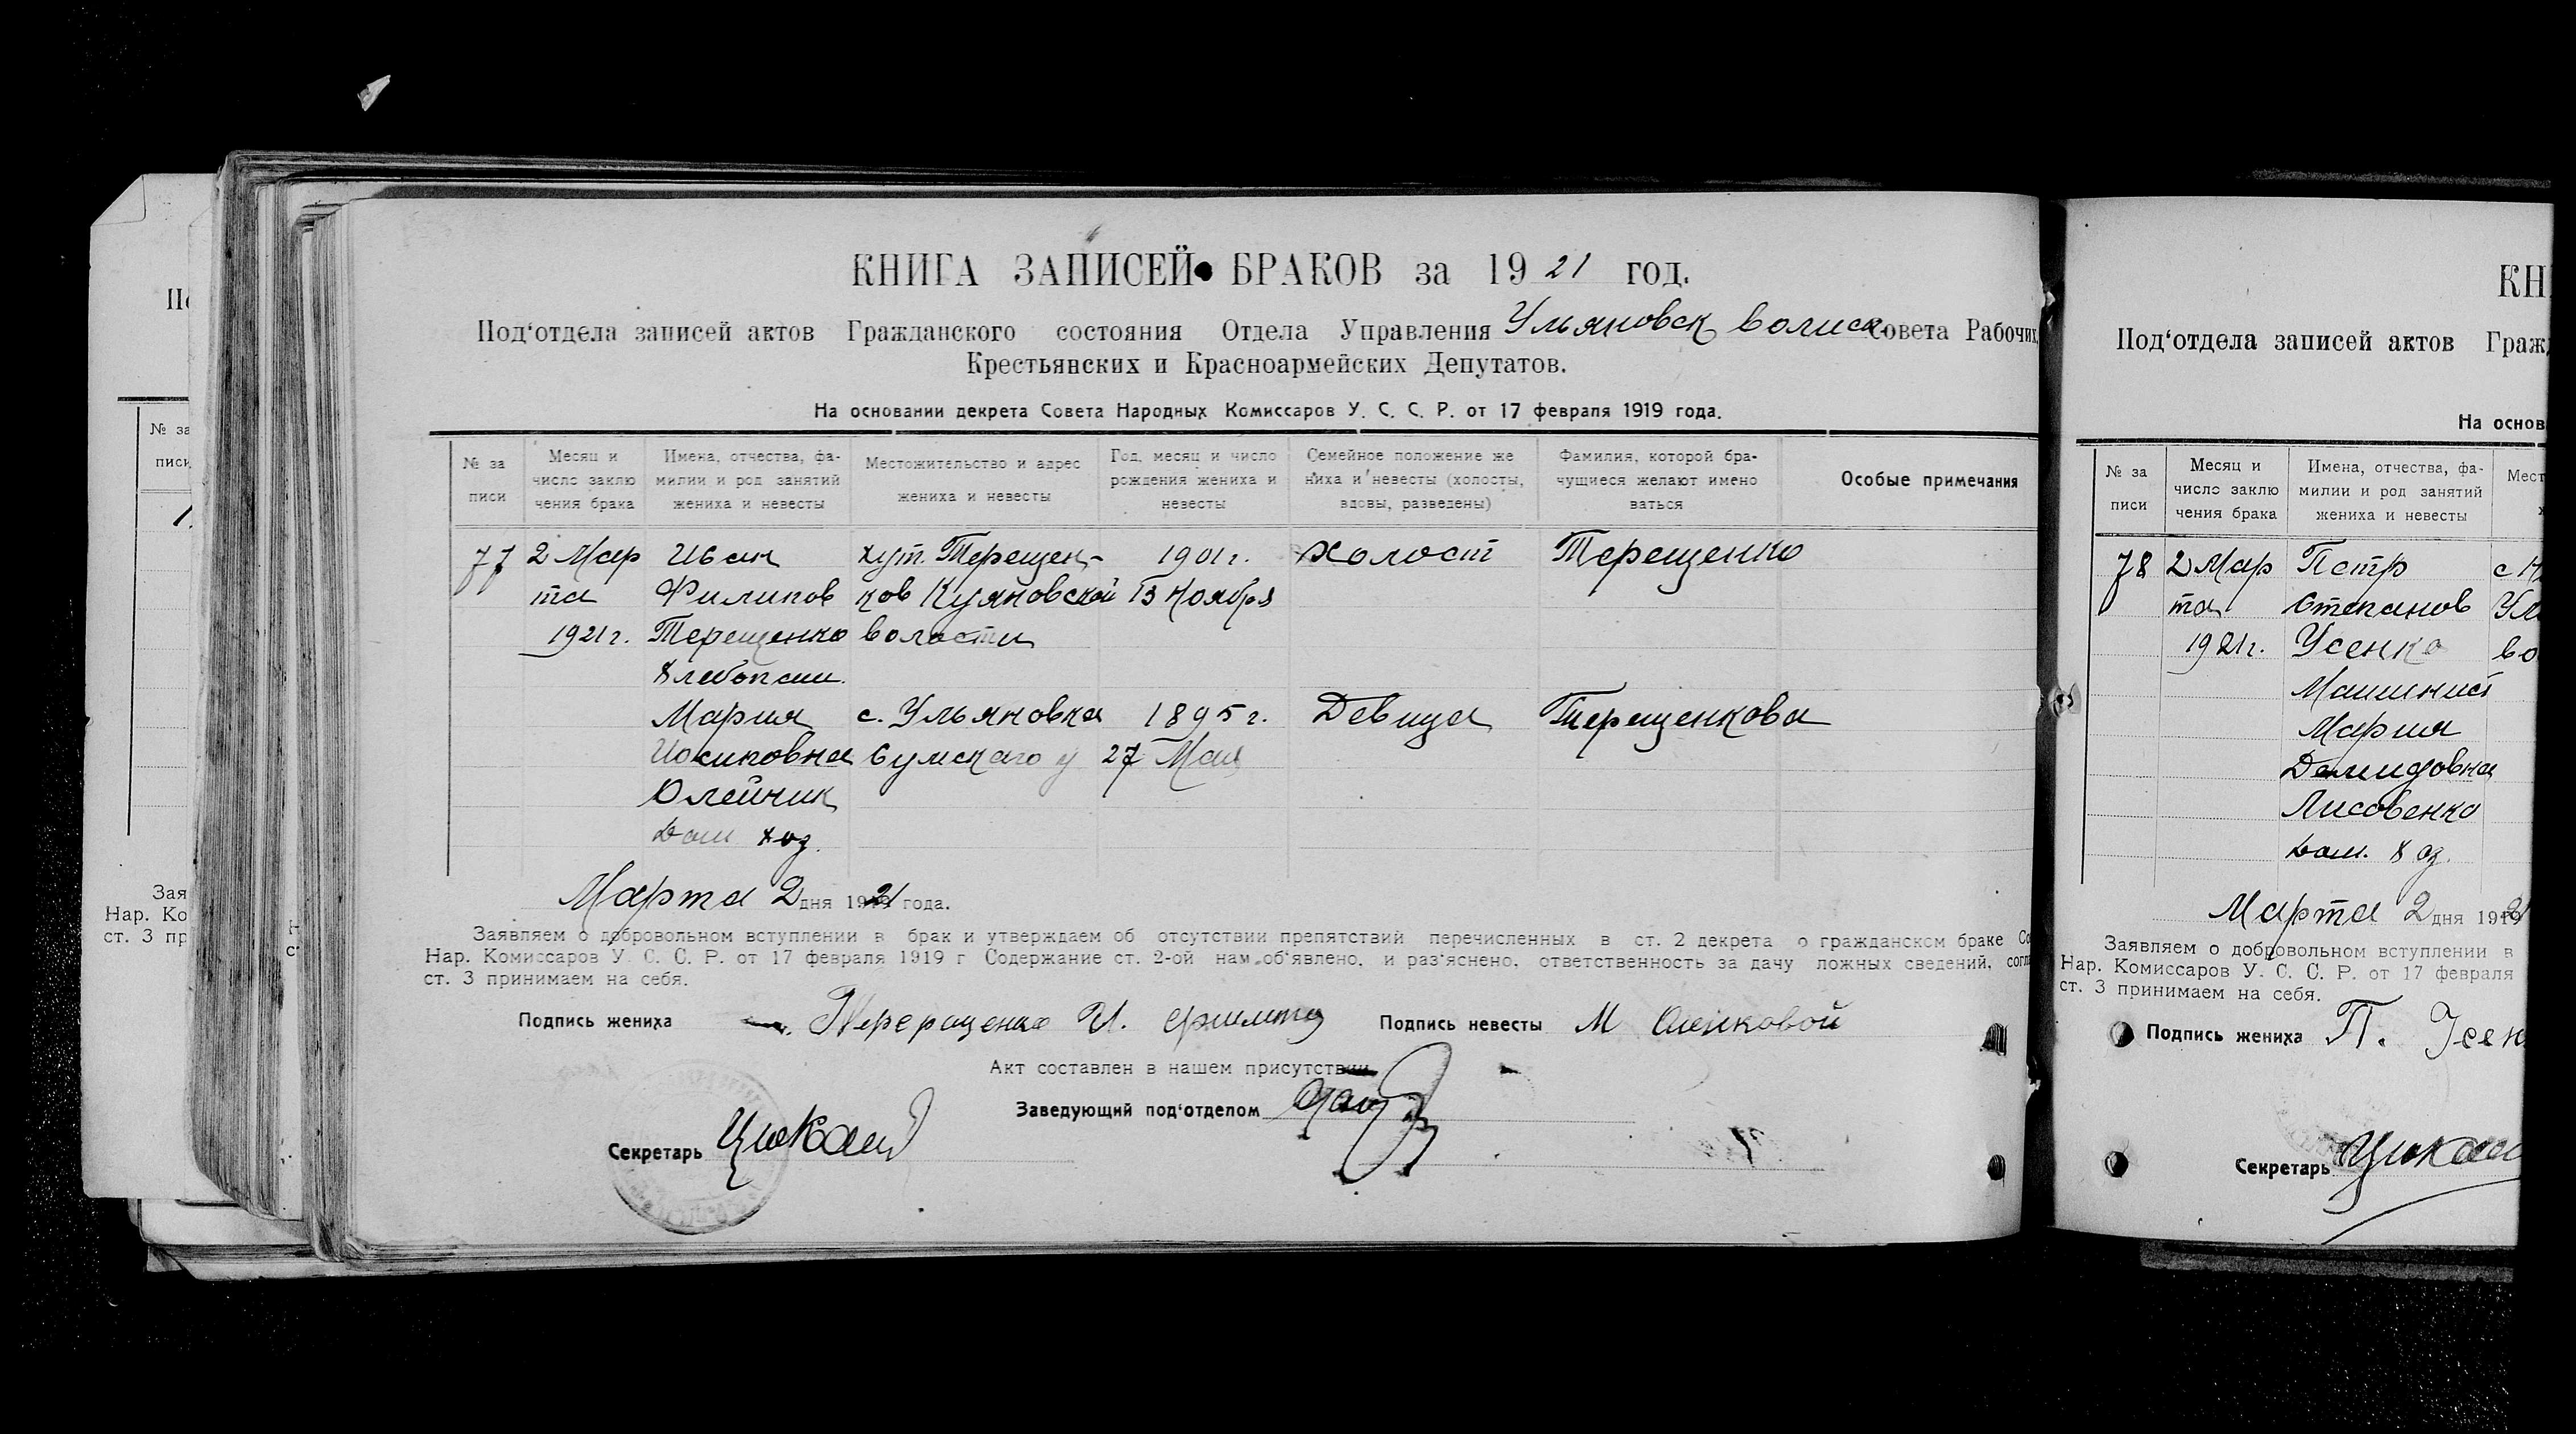 КНИГА ЗАПИСЕЙ БРАКОВ за 1921 год.
Под‘отдела записей актов Гражданского состояния Отдела Управления Ульяновск волиск Совета Рабочих,
Крестьянских и Красноармейских Депутатов.
На основании декрета Совета Народных Комиссаров У. С. С. Р. от 17 февраля 1919 года.
№ за
писи
Месяц и
число заклю
чения брака
Имена, отчества, фа-
милии и род занятий
жениха и невесты
Местожительство и адрес
жениха и невесты
Год, месяц и число
рождения жениха и
невесты
Семейное положение же
ниха и невесты (холосты,
вдовы, разведены)
Фамилия, которой бра-
чущиеся желают имено
ваться
Особые примечания
77 2 Мар Иван хут. Терещен- 1901 г. Холост Терещенко
та Филипов ков Куяновской 13 Ноября
1921 г. Терещенко волости
Хлебопаш.
Мария с. Ульяновка 1895 г. Девица Терещенкова
Иосиповна Сумскаго у 27 Мая
Олейник
Дом хоз.
Марта 2 дня 1921 года.
Заявляем о добровольном вступлении в брак и утверждаем об отсутствии препятствий перечисленных в ст. 2 декрета о гражданском браке Со
Нар. Комиссаров У. С. С. Р. от 17 февраля 1919 г Содержание ст. 2-ой нам об‘явлено, и раз‘яснено, ответственность за дачу ложных сведений, согла
ст. 3 принимаем на себя.
Подпись жениха И. Подпись невесты М
Акт составлен в нашем присутствии
Заведующий под‘отделом
Секретарь
КН
Под‘отдела записей актов Гражд
На основ
№ за
писи
Месяц и
число заклю
чения брака
Имена, отчества, фа-
милии и род занятий
жениха и невесты
Мест
78 2 Мар Петр с
та Степанов Ул
1921 г. Усенко во
Машинист
Мария
Демидовна
Лисовенко
Дом. хоз.
Марта 2 дня 192
Заявляем о добровольном вступлении в
Нар. Комиссаров У. С. С. Р. от 17 февраля
ст. 3 принимаем на себя.
Подпись жениха П. Усен
Секретарь
№ за
писи
Зая
Нар. Ко
ст. 3 пр